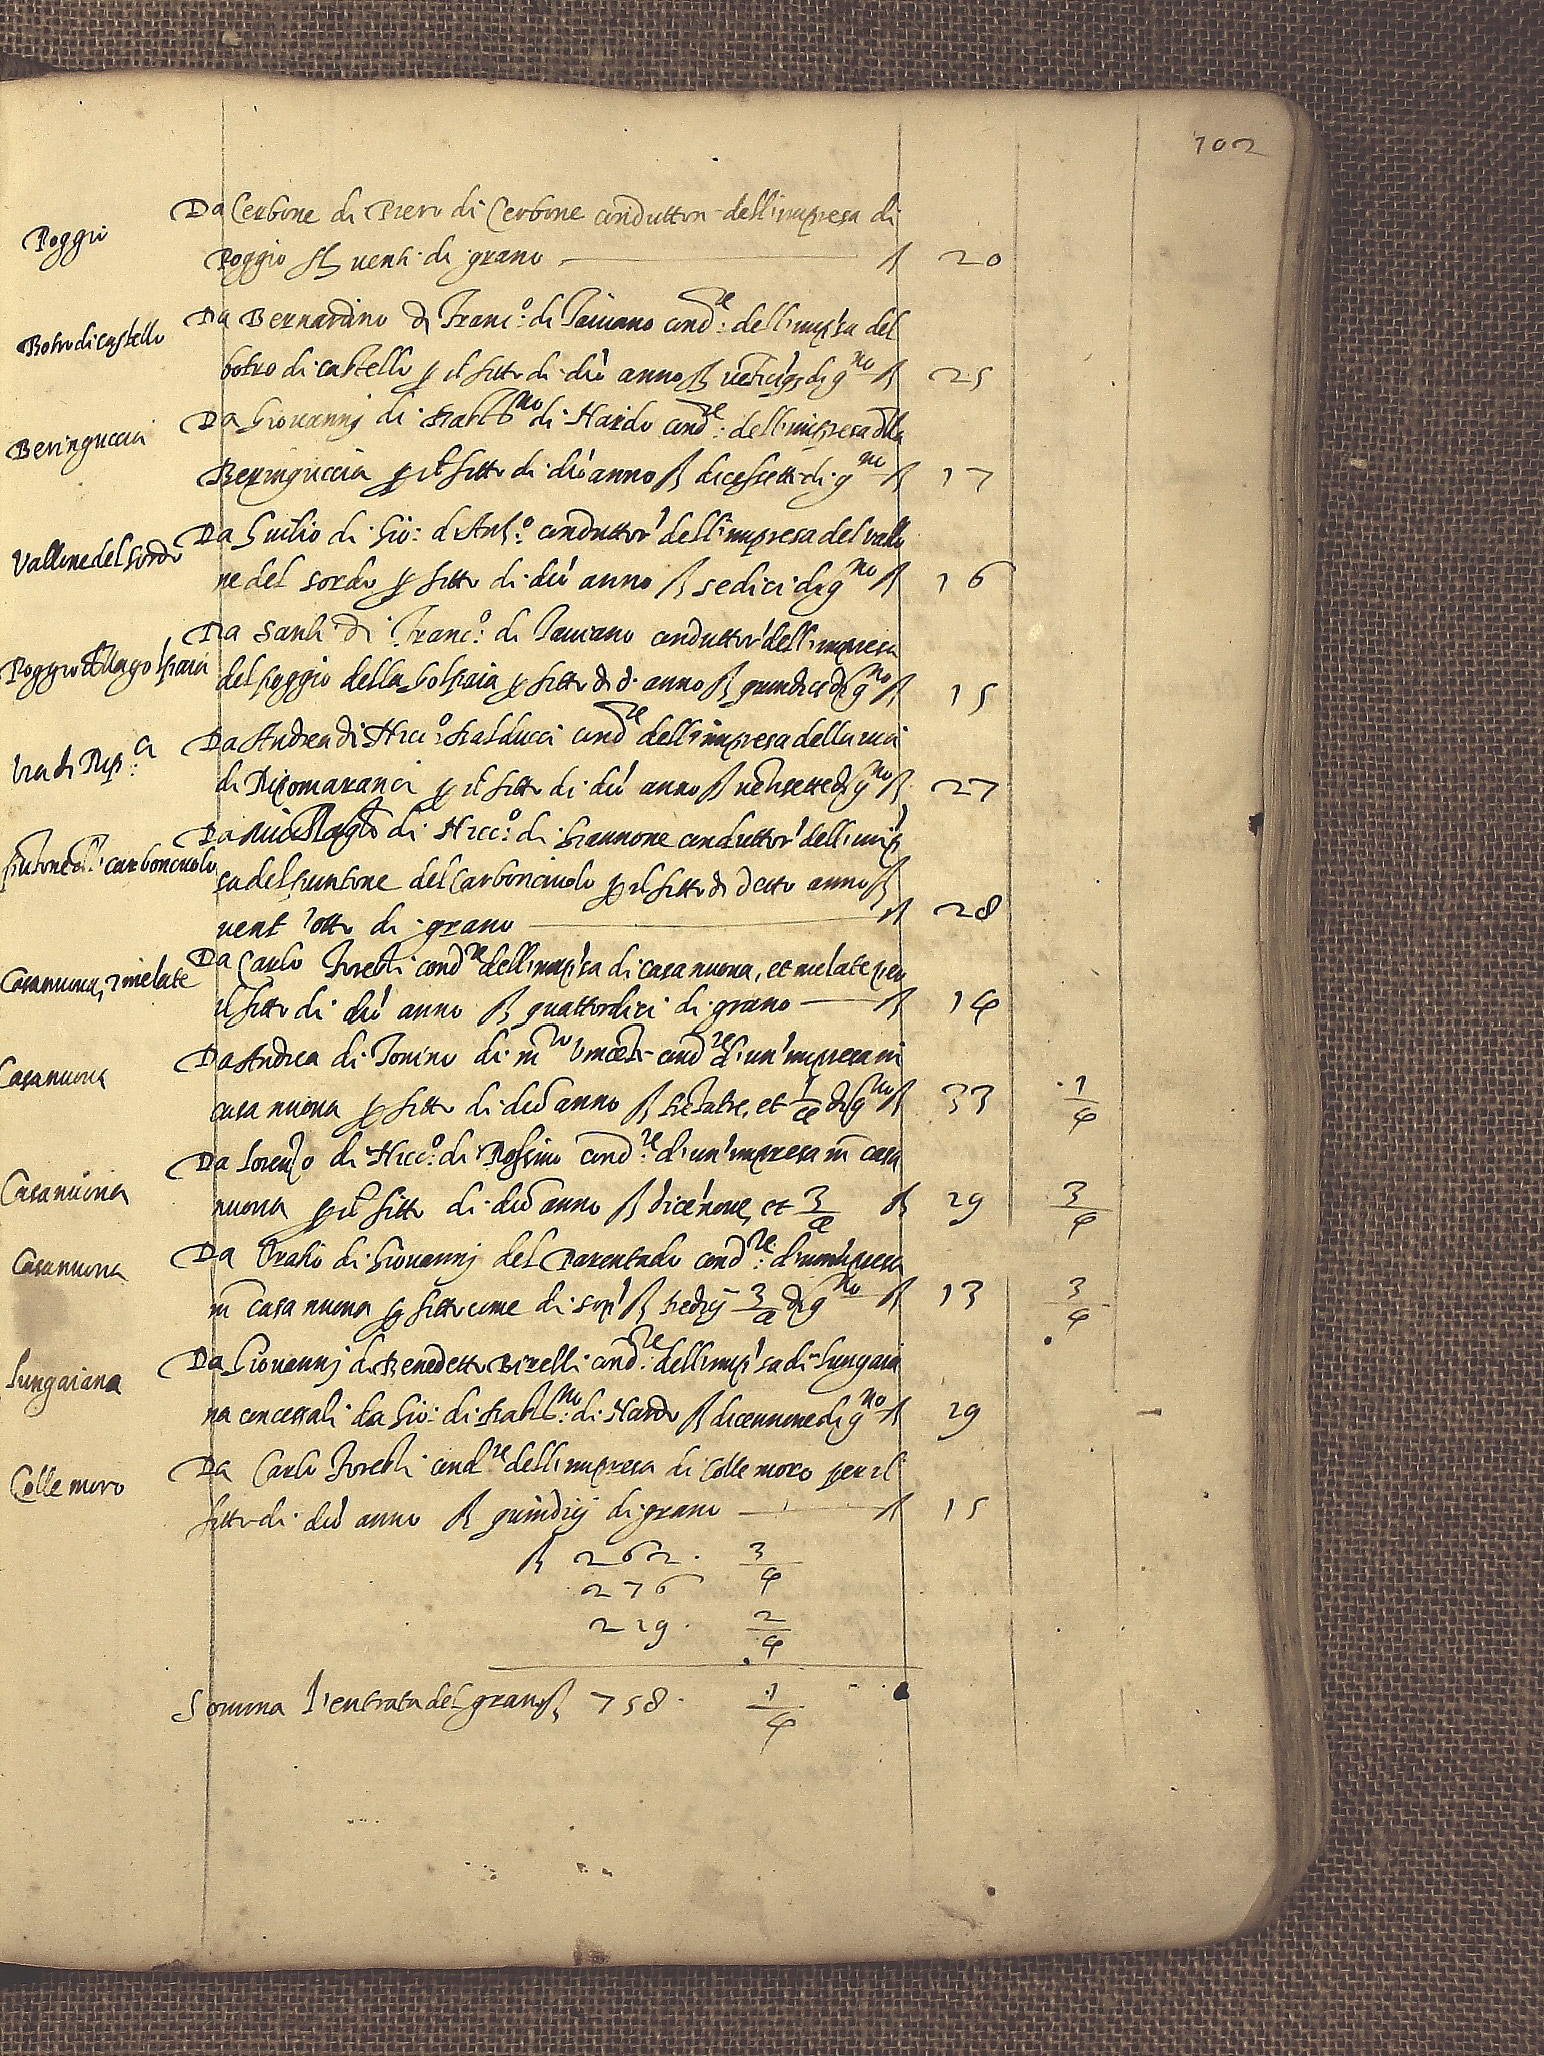 102
Poggio
Da Cerbone di Piero di Cerbone conduttor dell'impresa di
Poggio venti di grano 20
Botro di castello
Da Bernardino di Franc.o di Taviano cond.re dell'imp'sa del
botro di castello p il fitto di d'o anno di g.no 25
Beringuccia
Da Giovannj di di Nardo cond.re dell'impresa dlla
Beringuccia p il fitto di d'o anno dicessette di g.no 17
Vallone del sordo
Da Giulio di Gio: di Ant.o conduttor' dell'impresa del vallo
ne del sordo p fitto di d'o anno sedici di g.no 16
Poggio
Da Santi di Franc.o di Taviano conduttor' dell'impresa
del poggio della Golpaia p fitto di d. anno quindici di g.no 15
Via di Rip.a
Da Andrea di Nicc.o Balducci cond.re dell'impresa della via
di Ripomaranci p il fitto di d'o anno ventisette di g.no 27
carbonciuolo
Da di Nicc.o di Giannone conduttor' dell'imp'
sa del puntone del Carbonciuolo p il fitto di detto anno
vent'otto di grano 28
Casanuova, e melate
Da Carlo cond.re dell'imp'sa di casa nuova, et melate per
il fitto di d'o anno quattordici di grano 14
Casanuova
Da Andrea di Tonino di m.o cond.re d'un'impresa in
casa nuova p fitto di d'o anno trentatre, et 1/4 di g.no 33 1/4
Casanuova
Da Lorenzo di Nicc.o di Rossino cond.re d'un'impresa in casa
nuova p il fitto di d'o anno dicenove, et 3/4 19 3/4
Casanuova
Da Oratio di Giovannj del Parentado cond.re d'un'impresa
in casa nuova p fitto come di sop' tredicj 3/4 di g.no 13 3/4
Lungaiana
Da Giovannj di Benedetto Birelli cond.re dell'imp'sa di Lungaia
na concessali da Gio: di di Nardo dicennove di g.no 19
Colle moro
Da Carlo cond.re dell'impresa di Colle moro per il
fitto di d'o anno quindicj di grano 15
262. 3/4
276
219. 2/4
Somma l'entrata del grano 758. 1/4